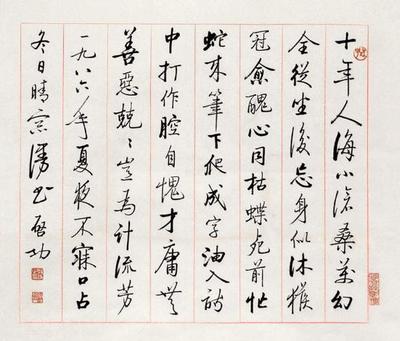 十年人海小滄桑萬幻
全從坐後忘身似沐猴
冠愈醜心同枯蝶死前忙
蛇來筆下爬成字油入詩
中打作腔自愧才庸無
善惡兢〻豈為計流芳
一九八六年夏夜不寐口占
冬日晴窗漫書 啓功